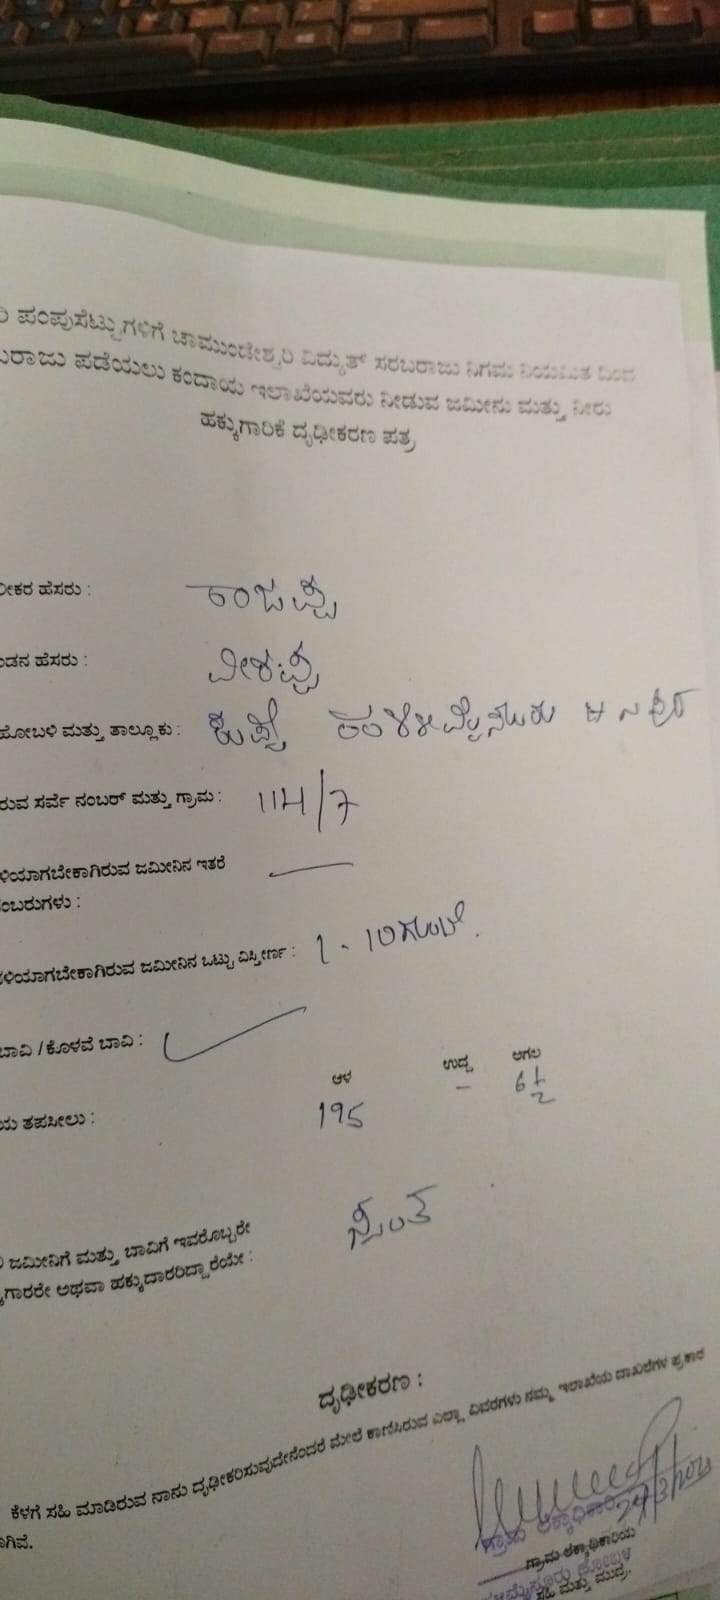 ಪಂಪುಸೆಟ್ಟುಗಳಿಗೆ ಚಾಮುಂಡೇಶ್ವರಿ ವಿದ್ಯುತ್ ಸರಬರಾಜು ನಿಗಮ ನಿಯಮಿತ ದಿಂದ
ಬರಾಜು ಪಡೆಯಲು ಕಂದಾಯ ಇಲಾಖೆಯವರು ನೀಡುವ ಜಮೀನು ಮತ್ತು ನೀರು
ಹಕ್ಕುಗಾರಿಕೆ ದೃಢೀಕರಣ ಪತ್ರ
ಹೆಸರು :
ವೀರಪ್ಪ
ಹೆಸರು :
ಹೋಬಳಿ ಮತ್ತು ತಾಲ್ಲೂಕು :
ರುವ ಸರ್ವೆ ನಂಬರ್ ಮತ್ತು ಗ್ರಾಮ : 114/7
ಳಿಯಾಗಬೇಕಾಗಿರುವ ಜಮೀನಿನ ಇತರೆ
ಂಬರುಗಳು :
ಳಿಯಾಗಬೇಕಾಗಿರುವ ಜಮೀನಿನ ಒಟ್ಟು ವಿಸ್ತೀರ್ಣ :
ಬಾವಿ / ಕೊಳವೆ ಬಾವಿ :
ಆಳ ಉದ್ದ ಅಗಲ
ಯ ತಪಸೀಲು : 195 – 6½
ಜಮೀನಿಗೆ ಮತ್ತು ಬಾವಿಗೆ ಇವರೊಬ್ಬರೇ
ಗಾರರೇ ಅಥವಾ ಹಕ್ಕುದಾರರಿದ್ದಾರೆಯೇ : ಸ್ವಂತ
ದೃಢೀಕರಣ :
ಕೆಳಗೆ ಸಹಿ ಮಾಡಿರುವ ನಾನು ದೃಢೀಕರಿಸುವುದೇನೆಂದರೆ ಮೇಲೆ ಕಾಣಿಸಿರುವ ಎಲ್ಲಾ ವಿವರಗಳು ನಮ್ಮ ಇಲಾಖೆಯ ದಾಖಲೆಗಳ ಪ್ರಕಾರ
ಾಗಿವೆ.
ಗ್ರಾಮ ಲೆಕ್ಕಾಧಿಕಾರಿ
ಗ್ರಾಮ ಲೆಕ್ಕಾಧಿಕಾರಿಯ
ಸಹಿ ಮತ್ತು ಮುದ್ರೆ.